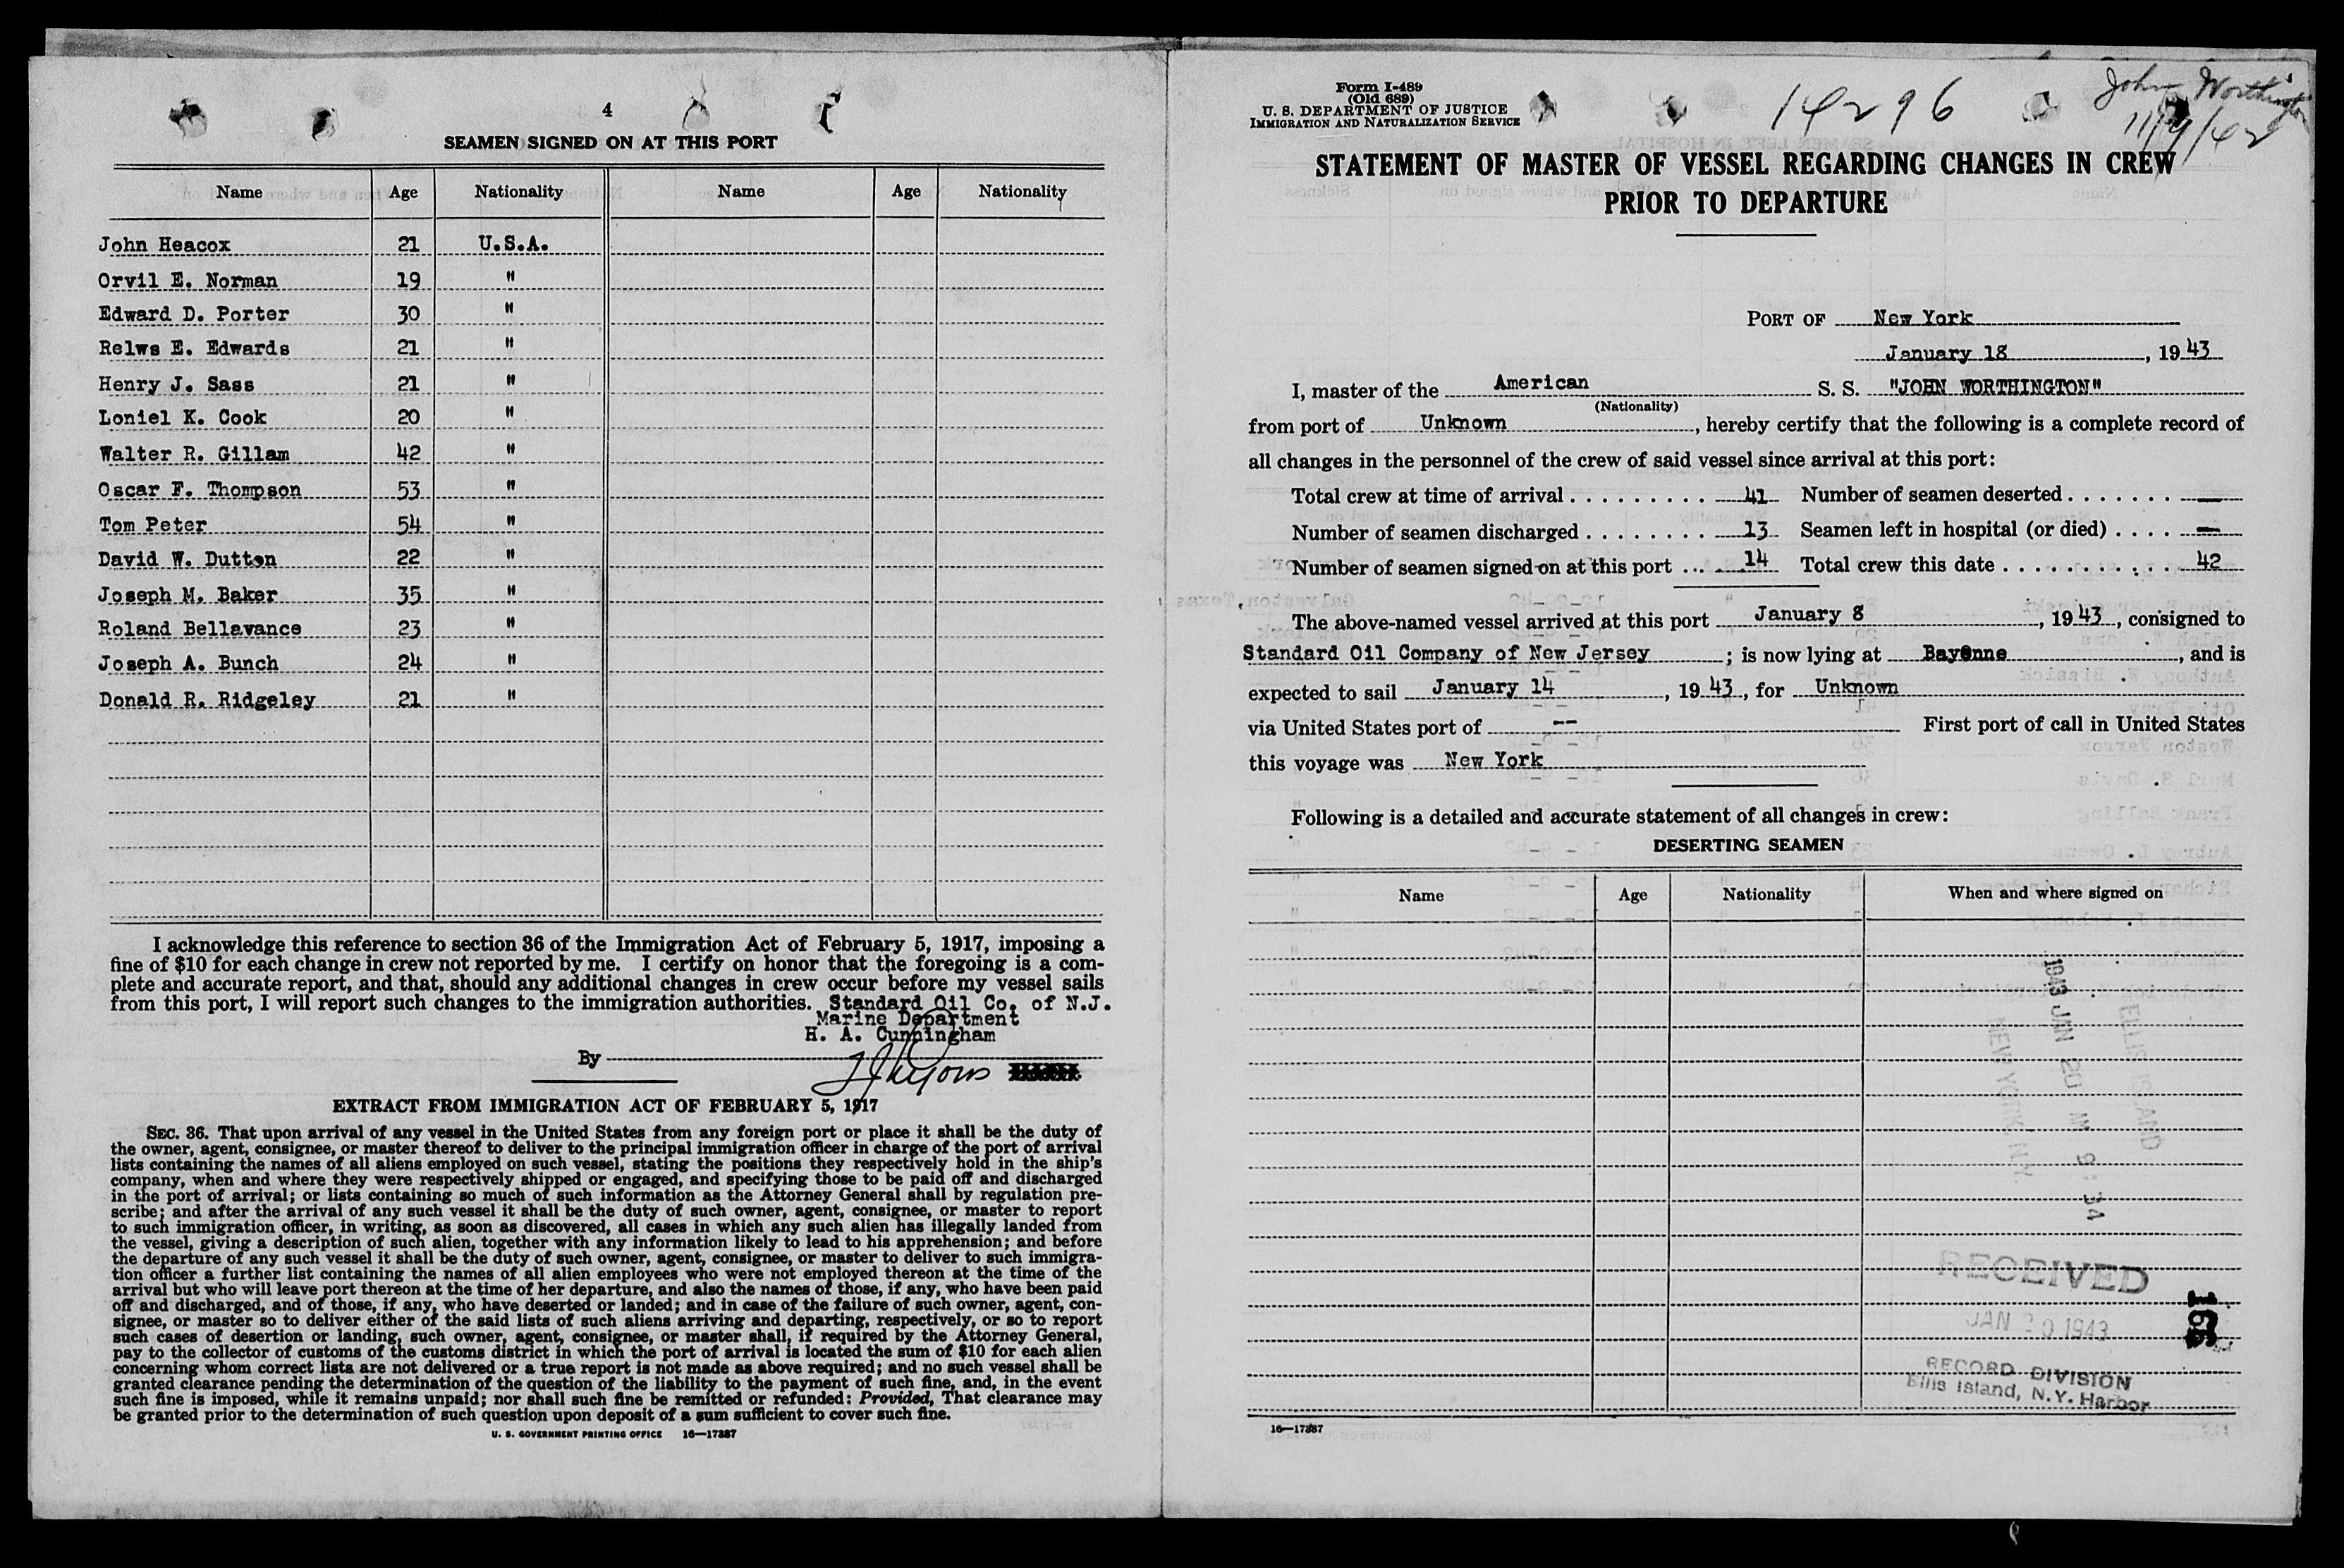 4
SEAMEN SIGNED ON AT THIS PORT
Name Age Nationality Name Age Nationality
John Heacox 21 U.S.A.
Orvil E. Norman 19 "
Edward D. Porter 30 "
Relws E. Edwards 21 "
Henry J. Sass 21 "
Loniel K. Cook 20 "
Walter R. Gillam 42 "
Oscar F. Thompson 53 "
Tom Peter 54 "
David W. Dutton 22 "
Joseph M. Baker 35 "
Roland Bellavance 23 "
Joseph A. Bunch 24 "
Donald R. Ridgeley 21 "
I acknowledge this reference to section 36 of the Immigration Act of February 5, 1917, imposing a
fine of $10 for each change in crew not reported by me. I certify on honor that the foregoing is a com-
plete and accurate report, and that, should any additional changes in crew occur before my vessel sails
from this port, I will report such changes to the immigration authorities. Standard Oil Co. of N.J.
Marine Department
H. A. Cunningham
By
EXTRACT FROM IMMIGRATION ACT OF FEBRUARY 5, 1917
SEC. 36. That upon arrival of any vessel in the United States from any foreign port or place it shall be the duty of
the owner, agent, consignee, or master thereof to deliver to the principal immigration officer in charge of the port of arrival
lists containing the names of all aliens employed on such vessel, stating the positions they respectively hold in the ship's
company, when and where they were respectively shipped or engaged, and specifying those to be paid off and discharged
in the port of arrival; or lists containing so much of such information as the Attorney General shall by regulation pre-
scribe; and after the arrival of any such vessel it shall be the duty of such owner, agent, consignee, or master to report
to such immigration officer, in writing, as soon as discovered, all cases in which any such alien has illegally landed from
the vessel, giving a description of such alien, together with any information likely to lead to his apprehension; and before
the departure of any such vessel it shall be the duty of such owner, agent, consignee, or master to deliver to such immigra-
tion officer a further list containing the names of all alien employees who were not employed thereon at the time of the
arrival but who will leave port thereon at the time of her departure, and also the names of those, if any, who have been paid
off and discharged, and of those, if any, who have deserted or landed; and in case of the failure of such owner, agent, con-
signee, or master so to deliver either of the said lists of such aliens arriving and departing, respectively, or so to report
such cases of desertion or landing, such owner, agent, consignee, or master shall, if required by the Attorney General,
pay to the collector of customs of the customs district in which the port of arrival is located the sum of $10 for each alien
concerning whom correct lists are not delivered or a true report is not made as above required; and no such vessel shall be
granted clearance pending the determination of the question of the liability to the payment of such fine, and, in the event
such fine is imposed, while it remains unpaid; nor shall such fine be remitted or refunded: Provided, That clearance may
be granted prior to the determination of such question upon deposit of a sum sufficient to cover such fine.
U. S. GOVERNMENT PRINTING OFFICE 16—17387
Form I-489
(Old 689)
U. S. DEPARTMENT OF JUSTICE
IMMIGRATION AND NATURALIZATION SERVICE
14296
John Worthington
11/9/42
STATEMENT OF MASTER OF VESSEL REGARDING CHANGES IN CREW
PRIOR TO DEPARTURE
PORT OF New York
January 18, 1943
I, master of the American S. S. "JOHN WORTHINGTON"
(Nationality)
from port of Unknown, hereby certify that the following is a complete record of
all changes in the personnel of the crew of said vessel since arrival at this port:
Total crew at time of arrival 41 Number of seamen deserted —
Number of seamen discharged 13 Seamen left in hospital (or died) —
Number of seamen signed on at this port 14 Total crew this date 42
The above-named vessel arrived at this port January 8, 1943, consigned to
Standard Oil Company of New Jersey; is now lying at Bayonne, and is
expected to sail January 14, 1943, for Unknown
via United States port of -- First port of call in United States
this voyage was New York
Following is a detailed and accurate statement of all changes in crew:
DESERTING SEAMEN
Name Age Nationality When and where signed on
1943 JAN 20 AM 9:34
ELLIS ISLAND
NEW YORK N.Y.
RECEIVED
JAN 20 1943
RECORD DIVISION
Ellis Island, N.Y. Harbor
16—17387